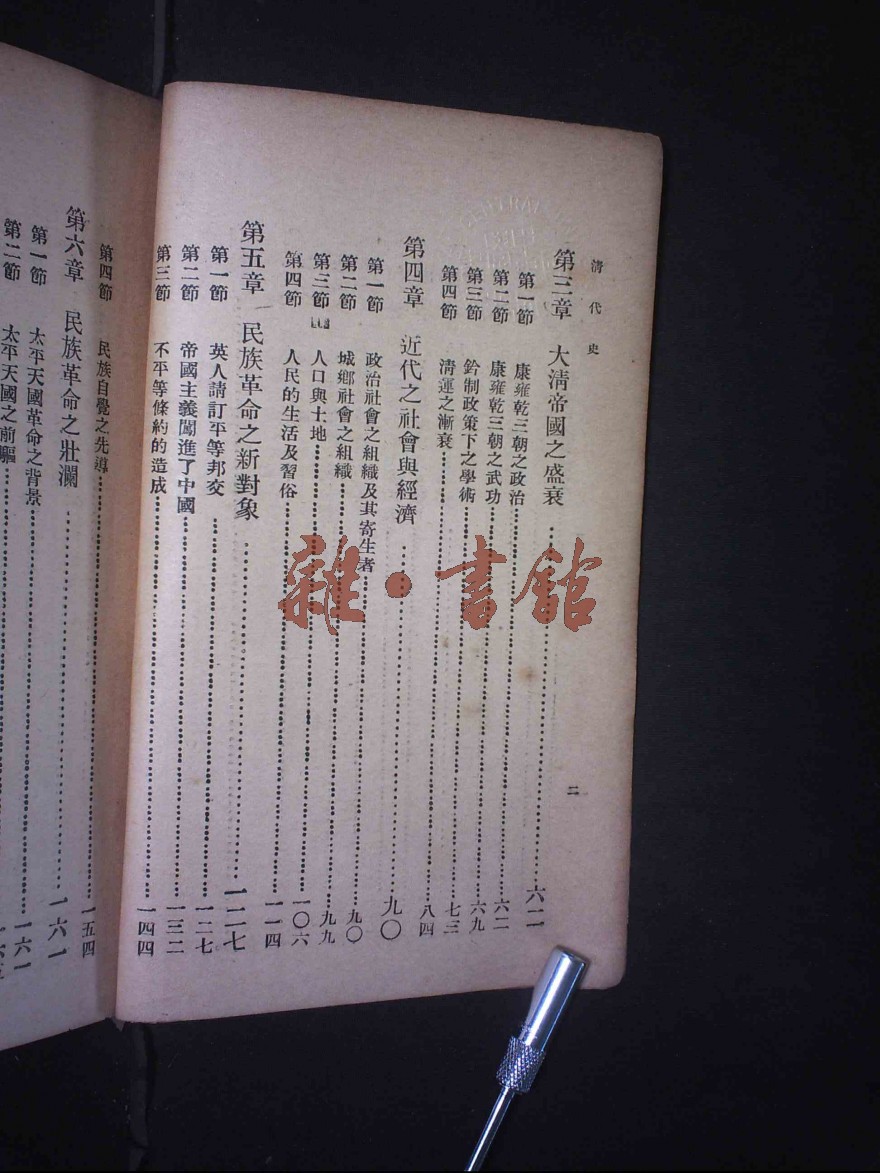 清代史
第三章 大清帝國之盛衰 六二
第一節 康雍乾三朝之政治 六二
第二節 康雍乾三朝之武功 六九
第三節 鈐制政策下之學術 七三
第四節 清運之漸衰 八四
第四章 近代之社會與經濟 九〇
第一節 政治社會之組織及其寄生者 九〇
第二節 城鄉社會之組織 九九
第三節 人口與土地 一〇六
第四節 人民的生活及習俗 一一四
第五章 民族革命之新對象 一二七
第一節 英人請訂平等邦交 一二七
第二節 帝國主義闖進了中國 一三二
第三節 不平等條約的造成 一四四
二
第四節 民族自覺之先導 一五四
第六章 民族革命之壯瀾 一六一
第一節 太平天國革命之背景 一六一
第二節 太平天國之前驅
雜·書館